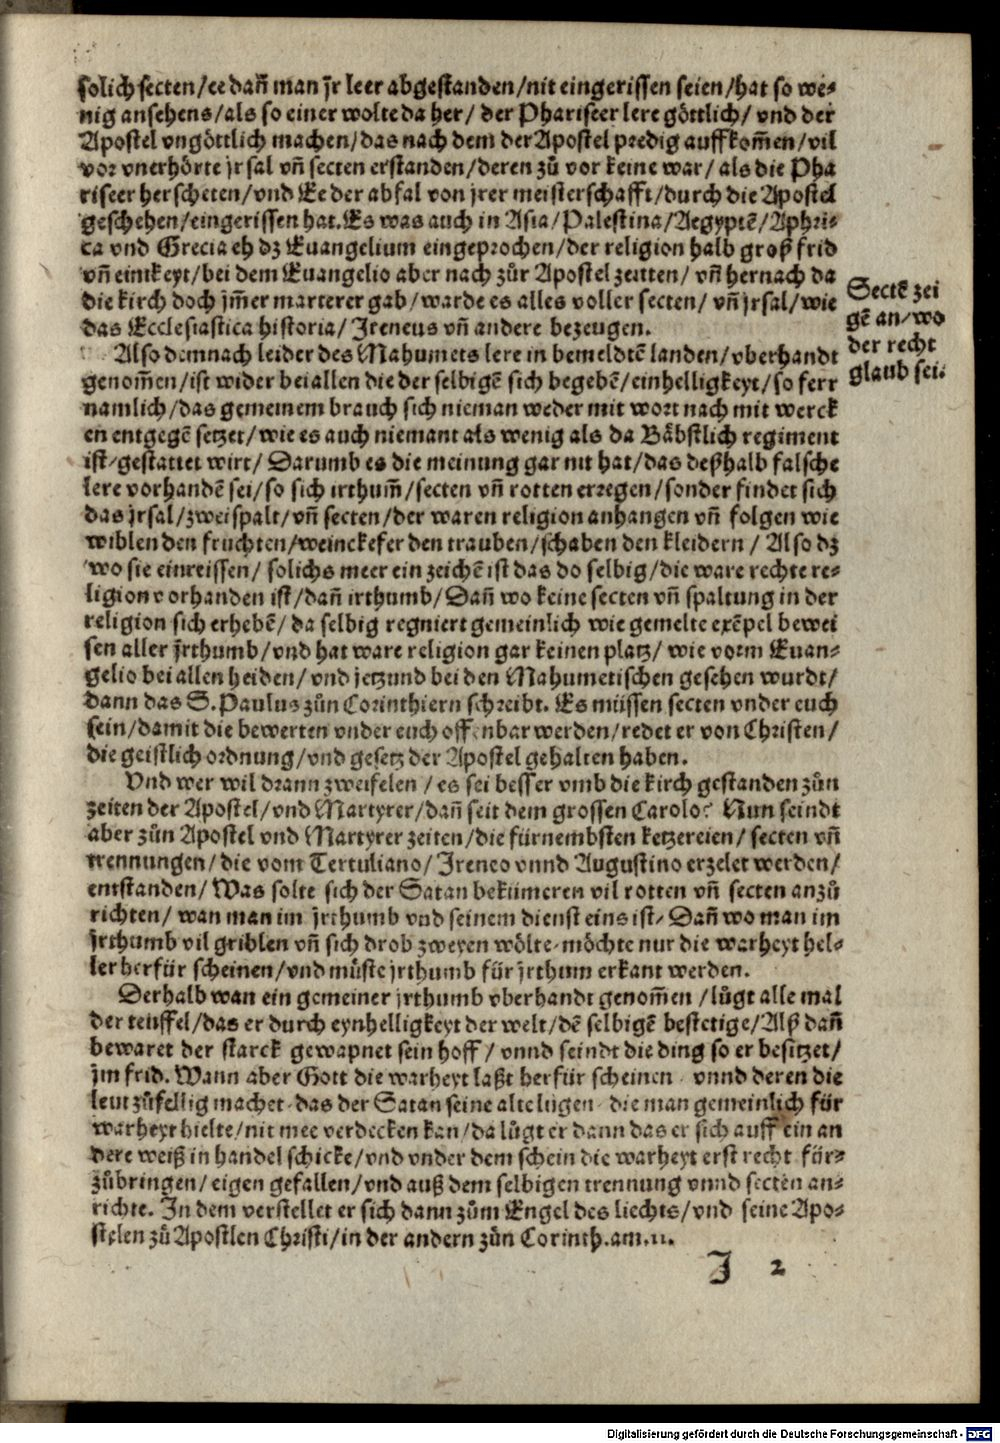 solich secten/ee dañ man jr leer abgestanden/nit eingerissen seien/hat so we-
nig ansehens/als so einer wolte da her/ der Phariseer lere göttlich/ vnd der
Apostel vngöttlich machen/das nach dem der Apostel predig auffkom̄en/vil
vor vnerhörte jrsal vñ secten erstanden/deren zů vor keine war/ als die Pha
riseer herscheten/vnd Ee der abfal von jrer meisterschafft/durch die Apostel
geschehen/eingerissen hat. Es was auch in Asia/Palestina/Aegyptē/Aphri-
ca vnd Grecia eh dz Euangelium eingeprochen/der religion halb groß frid
vñ einikeyt/bei dem Euangelio aber nach zůr Apostel zeitten/ vñ hernach da
die kirch doch jm̄er marterer gab/warde es alles voller secten/ vñ jrsal/wie
das Ecclesiastica historia/Ireneus vñ andere bezeugen.
Also demnach leider des Mahumets lere in bemeldtē landen/vberhandt
genom̄en/ist wider bei allen die der selbigē sich begebē/einhelligkeyt/so ferr
namlich/das gemeinem brauch sich nieman weder mit wort nach mit werck
en entgegē setzet/wie es auch niemant als wenig als da Båbstlich regiment
ist/gestattet wirt/ Darumb es die meinung gar nit hat/das deßhalb falsche
lere vorhandē sei/so sich irthum̄/secten vñ rotten erregen/sonder findet sich
das jrsal/zweispalt/vñ secten/der waren religion anhangen vñ folgen wie
wiblen den fruchten/weinckefer den trauben/schaben den kleidern/ Also dz
wo sie einreissen/ solichs meer ein zeichē ist das do selbig/die ware rechte re-
ligion vorhanden ist/dañ irthumb/Dañ wo keine secten vñ spaltung in der
religion sich erhebē/da selbig regniert gemeinlich wie gemelte exēpel bewei
sen aller jrthumb/vnd hat ware religion gar keinen platz/ wie vorm Euan-
gelio bei allen heiden/vnd jetzund bei den Mahumetischen gesehen wurdt/
dann das S. Paulus zůn Corinthiern schreibt. Es müssen secten vnder euch
sein/damit die bewerten vnder euch offenbar werden/redet er von Christen/
die geistlich ordnung/vnd gesetz der Apostel gehalten haben.
Vnd wer wil drann zweifelen/es sei besser vmb die kirch gestanden zůn
zeiten der Apostel/vnd Martyrer/dañ seit dem grossen Carolo? Nun seindt
aber zůn Apostel vnd Martyrer zeiten/die fürnembsten ketzereien/ secten vñ
trennungen/die vom Tertuliano/Ireneo vnnd Augustino erzelet werden/
entstanden/Was solte sich der Satan bekümeren vil rotten vñ secten anzů
richten/ wan man im jrthumb vnd seinem dienst eins ist/Dañ wo man im
jrthumb vil griblen vñ sich drob zweyen wölte/möchte nur die warheyt hel-
ler herfür scheinen/vnd müste jrthumb für jrthum erkant werden.
Derhalb wan ein gemeiner jrthumb vberhandt genom̄en/lůgt alle mal
der teuffel/das er durch eynhelligkeyt der welt/dē selbigē bestetige/Alß dañ
bewaret der starck gewapnet sein hoff/ vnnd seindt die ding so er besitzet/
jm frid. Wann aber Gott die warheyt laßt herfür scheinen/vnnd deren die
leut zůfellig machet/das der Satan seine alte lügen/die man gemeinlich für
warheyt hielte/nit mee verdecken kan/da lůgt er dann das er sich auff ein an
dere weiß in handel schicke/vnd vnder dem schein die warheyt erst recht für-
zůbringen/eigen gefallen/vnd auß dem selbigen trennung vnnd secten an-
richte. In dem verstellet er sich dann zům Engel des liechts/vnd seine Apo-
stelen zů Apostlen Christi/in der andern zůn Corinth.am.11.
J 2
Sectē zei
gē an/wo
der recht
glaub sei.
Digitalisierung gefördert durch die Deutsche Forschungsgemeinschaft - DFG